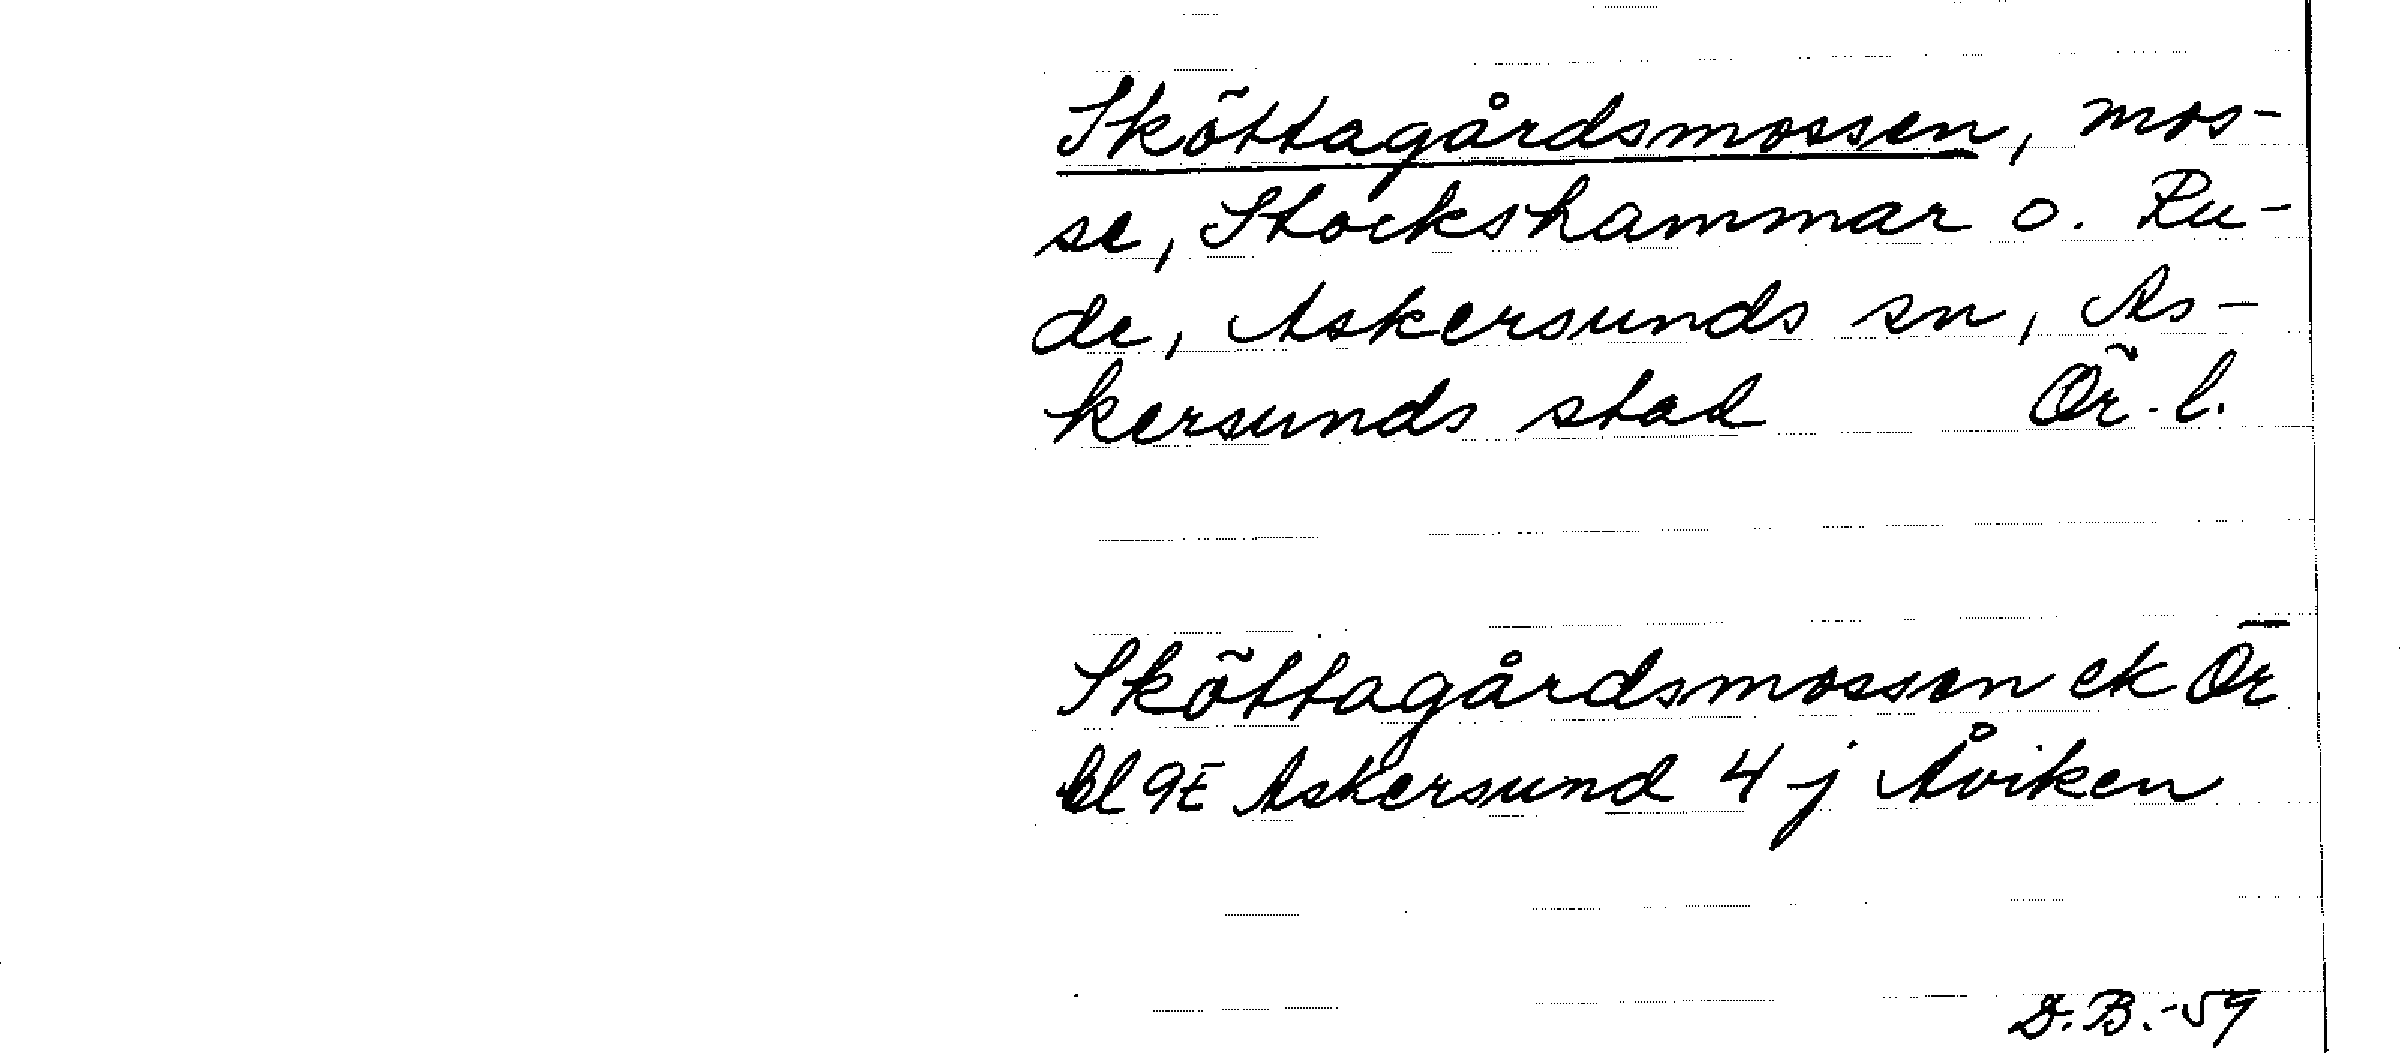 Sköttagårdsmossen, mos-
se, Stockshammar o. Ru-
de, Askersunds sn, As-
kersunds stad Ör. l.
Sköttagårdsmossen ek Ör
bl 9E Askersund 4 j Åviken
D.B.-59